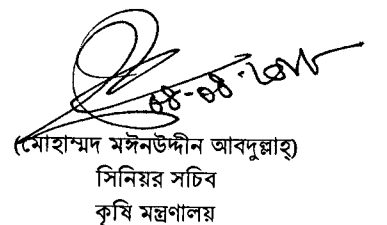 ০৪-০৪-২০১৮
(মোহাম্মদ মঈনউদ্দীন আবদুল্লাহ)
সিনিয়র সচিব
কৃষি মন্ত্রণালয়